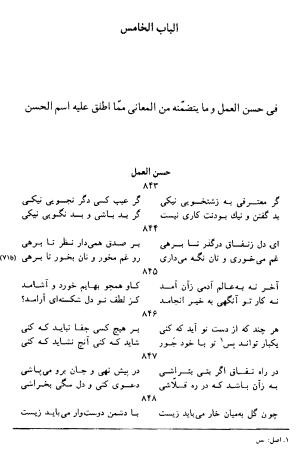 الباب الخامس
فی حسن العمل و ما یتضمّنه من المعانی ممّا اطلق علیه اسم الحسن
حسن العمل
۸۴۳
گر معترفی به زشتخویی نیکی گر عیب کسی دگر نجویی نیکی
بد گفتن و نیك بودنت کاری نیست گر بد باشی و بد نگویی نیکی
۸۴۴
ای دل زنفاق درگذر تا برهی بر صدق همی‌دار نظر تا برهی
غم می‌خوری و نان نگه می‌داری رو غم مخور و نان بخور تا برهی (71b)
۸۴۵
آخر نه به‌عالم آدمی زآن آمد کاو همچو بهایم خورد و آشامد
نه کار تو آنگهی به خیر انجامد کز لطف تو دل شکسته‌ای آرامد؟
۸۴۶
هر چند که از دست تو آید که کنی بر هیچ کسی جفا نباید که کنی
یکبار تواند پس۱ تو با خود جور شاید که کنی آنچ نشاید که کنی
۸۴۷
در راه نفاق اگر بتی بتراشی در پیش نهی و جان برو می‌پاشی
به زآن باشد که در ره قلاشی دعوی کنی و دل سگی بخراشی
۸۴۸
چون گل به‌میان خار می‌باید زیست با دشمن دوست‌وار می‌باید زیست
۱. اصل: س